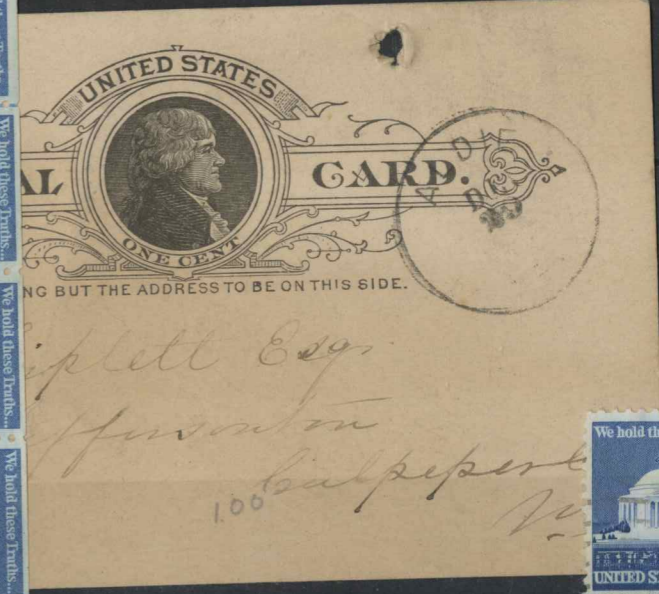 UNITED STATES
AL CARD.
ONE CENT
NG BUT THE ADDRESS TO BE ON THIS SIDE.
iplett Esqr
ffersonton
Culpeper
1.00
We hold these Truths...
We hold these Truths...
We hold these Truths...
We hold th
UNITED S